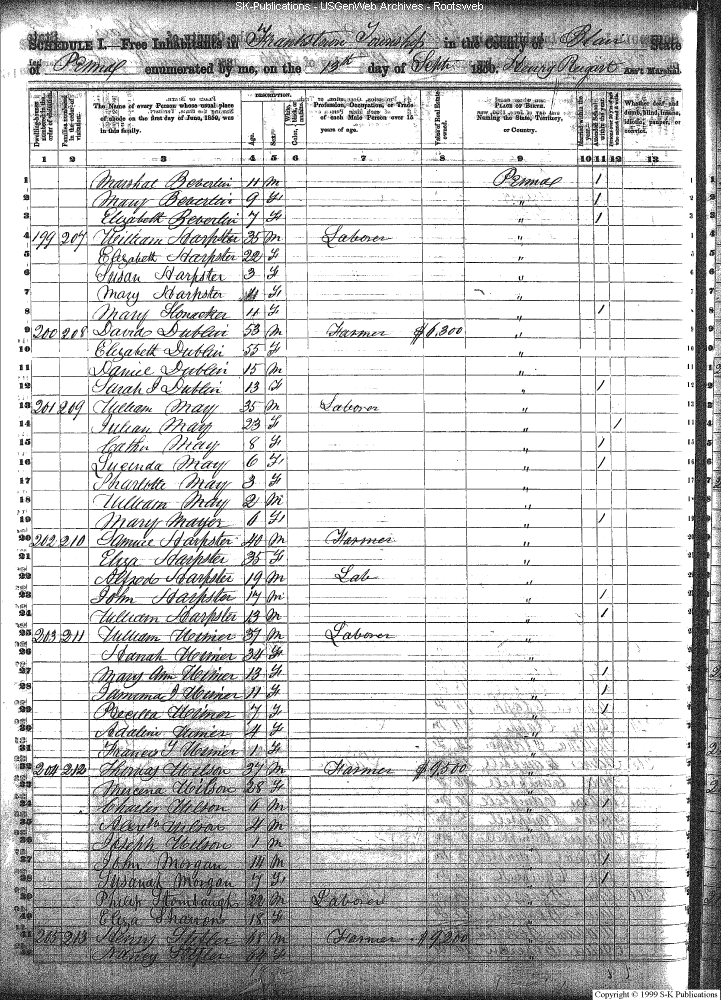 SK-Publications - USGenWeb Archives - Rootsweb
SCHEDULE I.—Free Inhabitants in Frankstown Township in the County of Blair State
of Penna enumerated by me, on the 13th day of Sept 1850. Henry Ass't Marshal.
DESCRIPTION.
Dwelling-houses numbered in the order of visitation. Families numbered in the order of visitation. The Name of every Person whose usual place of abode on the first day of June, 1850, was in this family. Age. Sex. Color, Profession, Occupation, or Trade of each Male Person over 15 years of age. Value of Real Estate owned. PLACE OF BIRTH. Naming the State, Territory, or Country. Married within the year. Attended School within the year. Whether deaf and dumb, blind, insane, idiotic, pauper, or convict.
1 2 3 4 5 6 7 8 9 10 11 12 13
1 Marshal Beverlin 11 M Penna 1
2 Mary Beverlin 9 F " 1
3 Elizabeth Beverlin 7 F " 1
4 199 207 William Harpster 35 M Laborer "
5 Elizabeth Harpster 22 F "
6 Susan Harpster 3 F "
7 Mary Harpster F "
8 Mary 11 F " 1
9 200 208 David Dublin 53 M Farmer $6,300 "
10 Elizabeth Dublin 55 F "
11 Daniel Dublin 15 M "
12 Sarah J Dublin 13 F " 1
13 201 209 William May 35 M Laborer "
14 Julian May 23 F " 1
15 Cathn May 8 F " 1
16 Lucinda May 6 F " 1
17 Charlotte May 3 F "
18 William May 2 M "
19 Mary Mayer 6 F " 1
20 202 210 Samuel Harpster 40 M Farmer "
21 Eliza Harpster 35 F "
22 Alfred Harpster 19 M Lab "
23 John Harpster 17 M " 1
24 William Harpster 13 M " 1
25 203 211 William Weimer 37 M Laborer "
26 Hanah Weimer 34 F "
27 Mary Ann Weimer 13 F " 1
28 Jamima J Weimer 11 F " 1
29 Recilla Weimer 7 F " 1
30 Adaline Weimer 4 F "
31 Frances J Weimer 1 F "
32 204 212 Thomas Wilson 37 M Farmer $9,500 "
33 Wilson 28 F "
34 Charles Wilson 6 M " 1
35 Alexr Wilson 4 M "
36 Joseph Wilson 1 M "
37 John Morgan 14 M " 1
38 Susanah Morgan 7 F " 1
39 Philip Stombaugh 22 M Laborer "
40 Eliza Sharron 18 F "
41 205 213 Henry Stifler 68 M Farmer $9,200 "
42 Nancy Stifler 64 F "
Copyright © 1999 S-K Publications